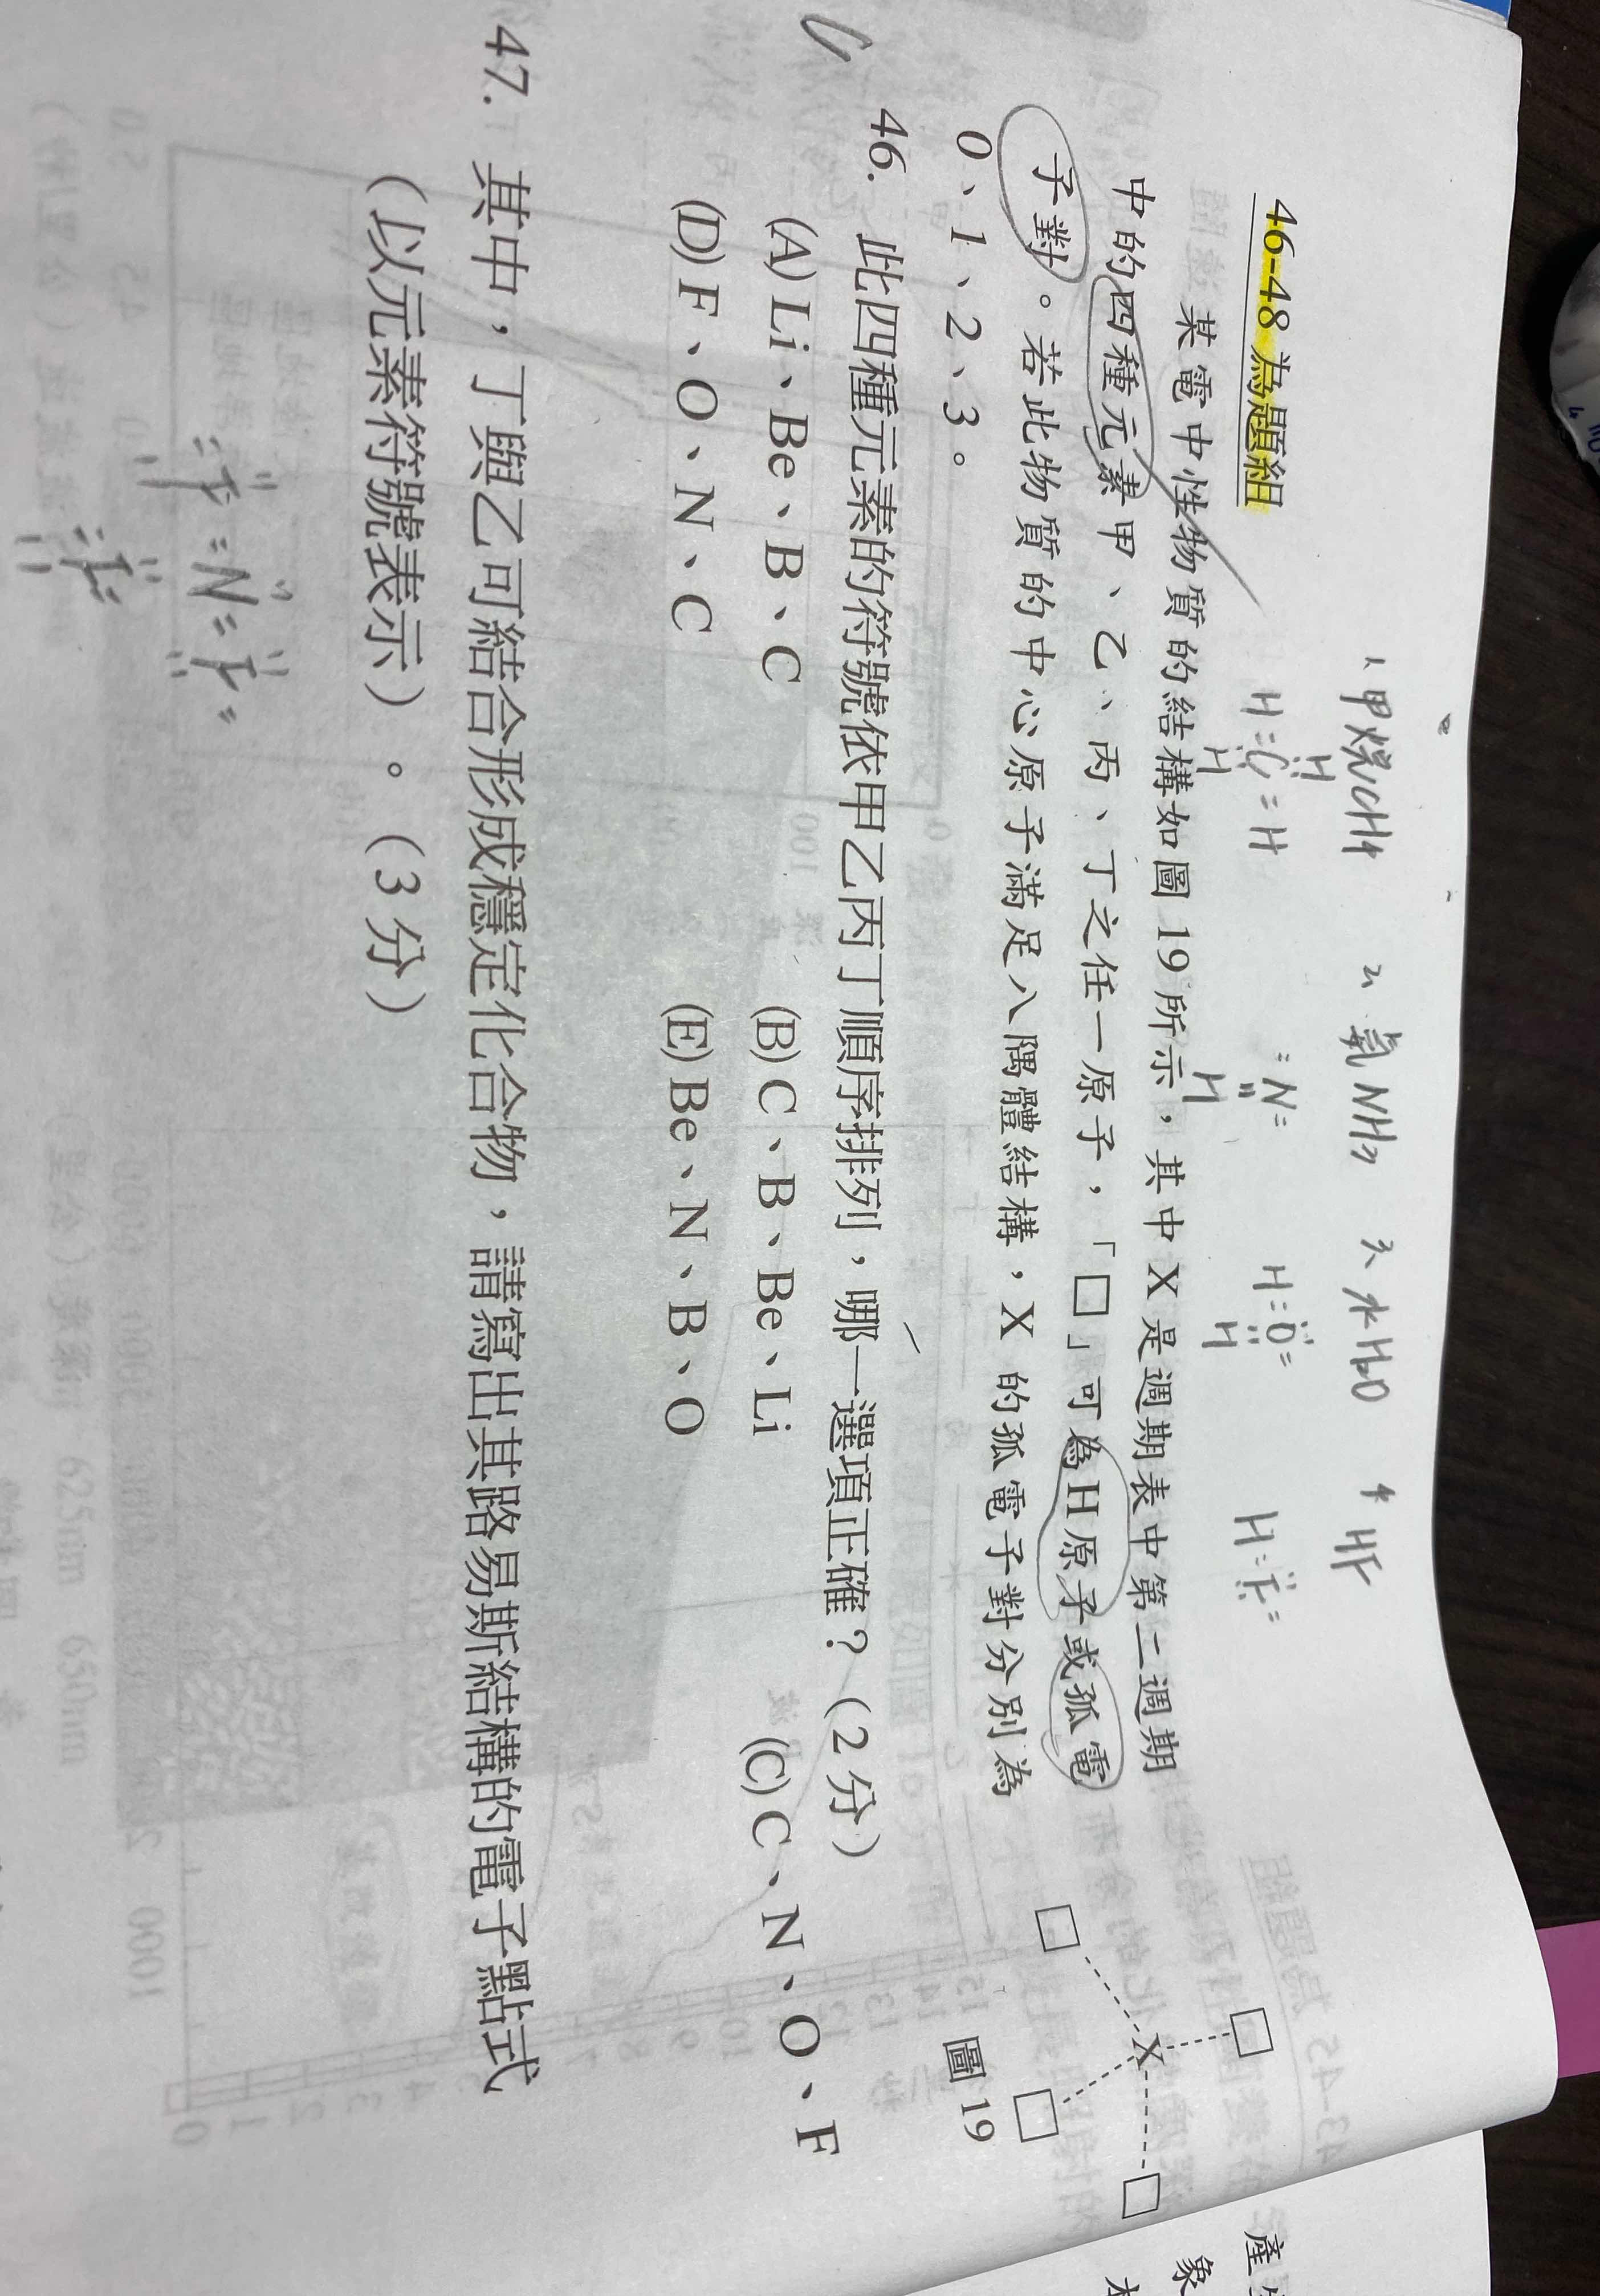 1、甲烷CH4 2、氨NH3 3、水H2O 4 HF
H C H H H
N H
H O H
H F
46-48 為題組
某電中性物質的結構如圖 19 所示，其中 X 是週期表中第二週期
中的四種元素甲、乙、丙、丁之任一原子，「□」可為 H 原子或孤電
子對。若此物質的中心原子滿足八隅體結構，X 的孤電子對分別為
0、1、2、3。
X
圖 19
46. 此四種元素的符號依甲乙丙丁順序排列，哪一選項正確？（2 分）
(A) Li、Be、B、C (B) C、B、Be、Li (C) C、N、O、F
(D) F、O、N、C (E) Be、N、B、O
47. 其中，丁與乙可結合形成穩定化合物，請寫出其路易斯結構的電子點式
（以元素符號表示）。（3 分）
F N F
F
產
象